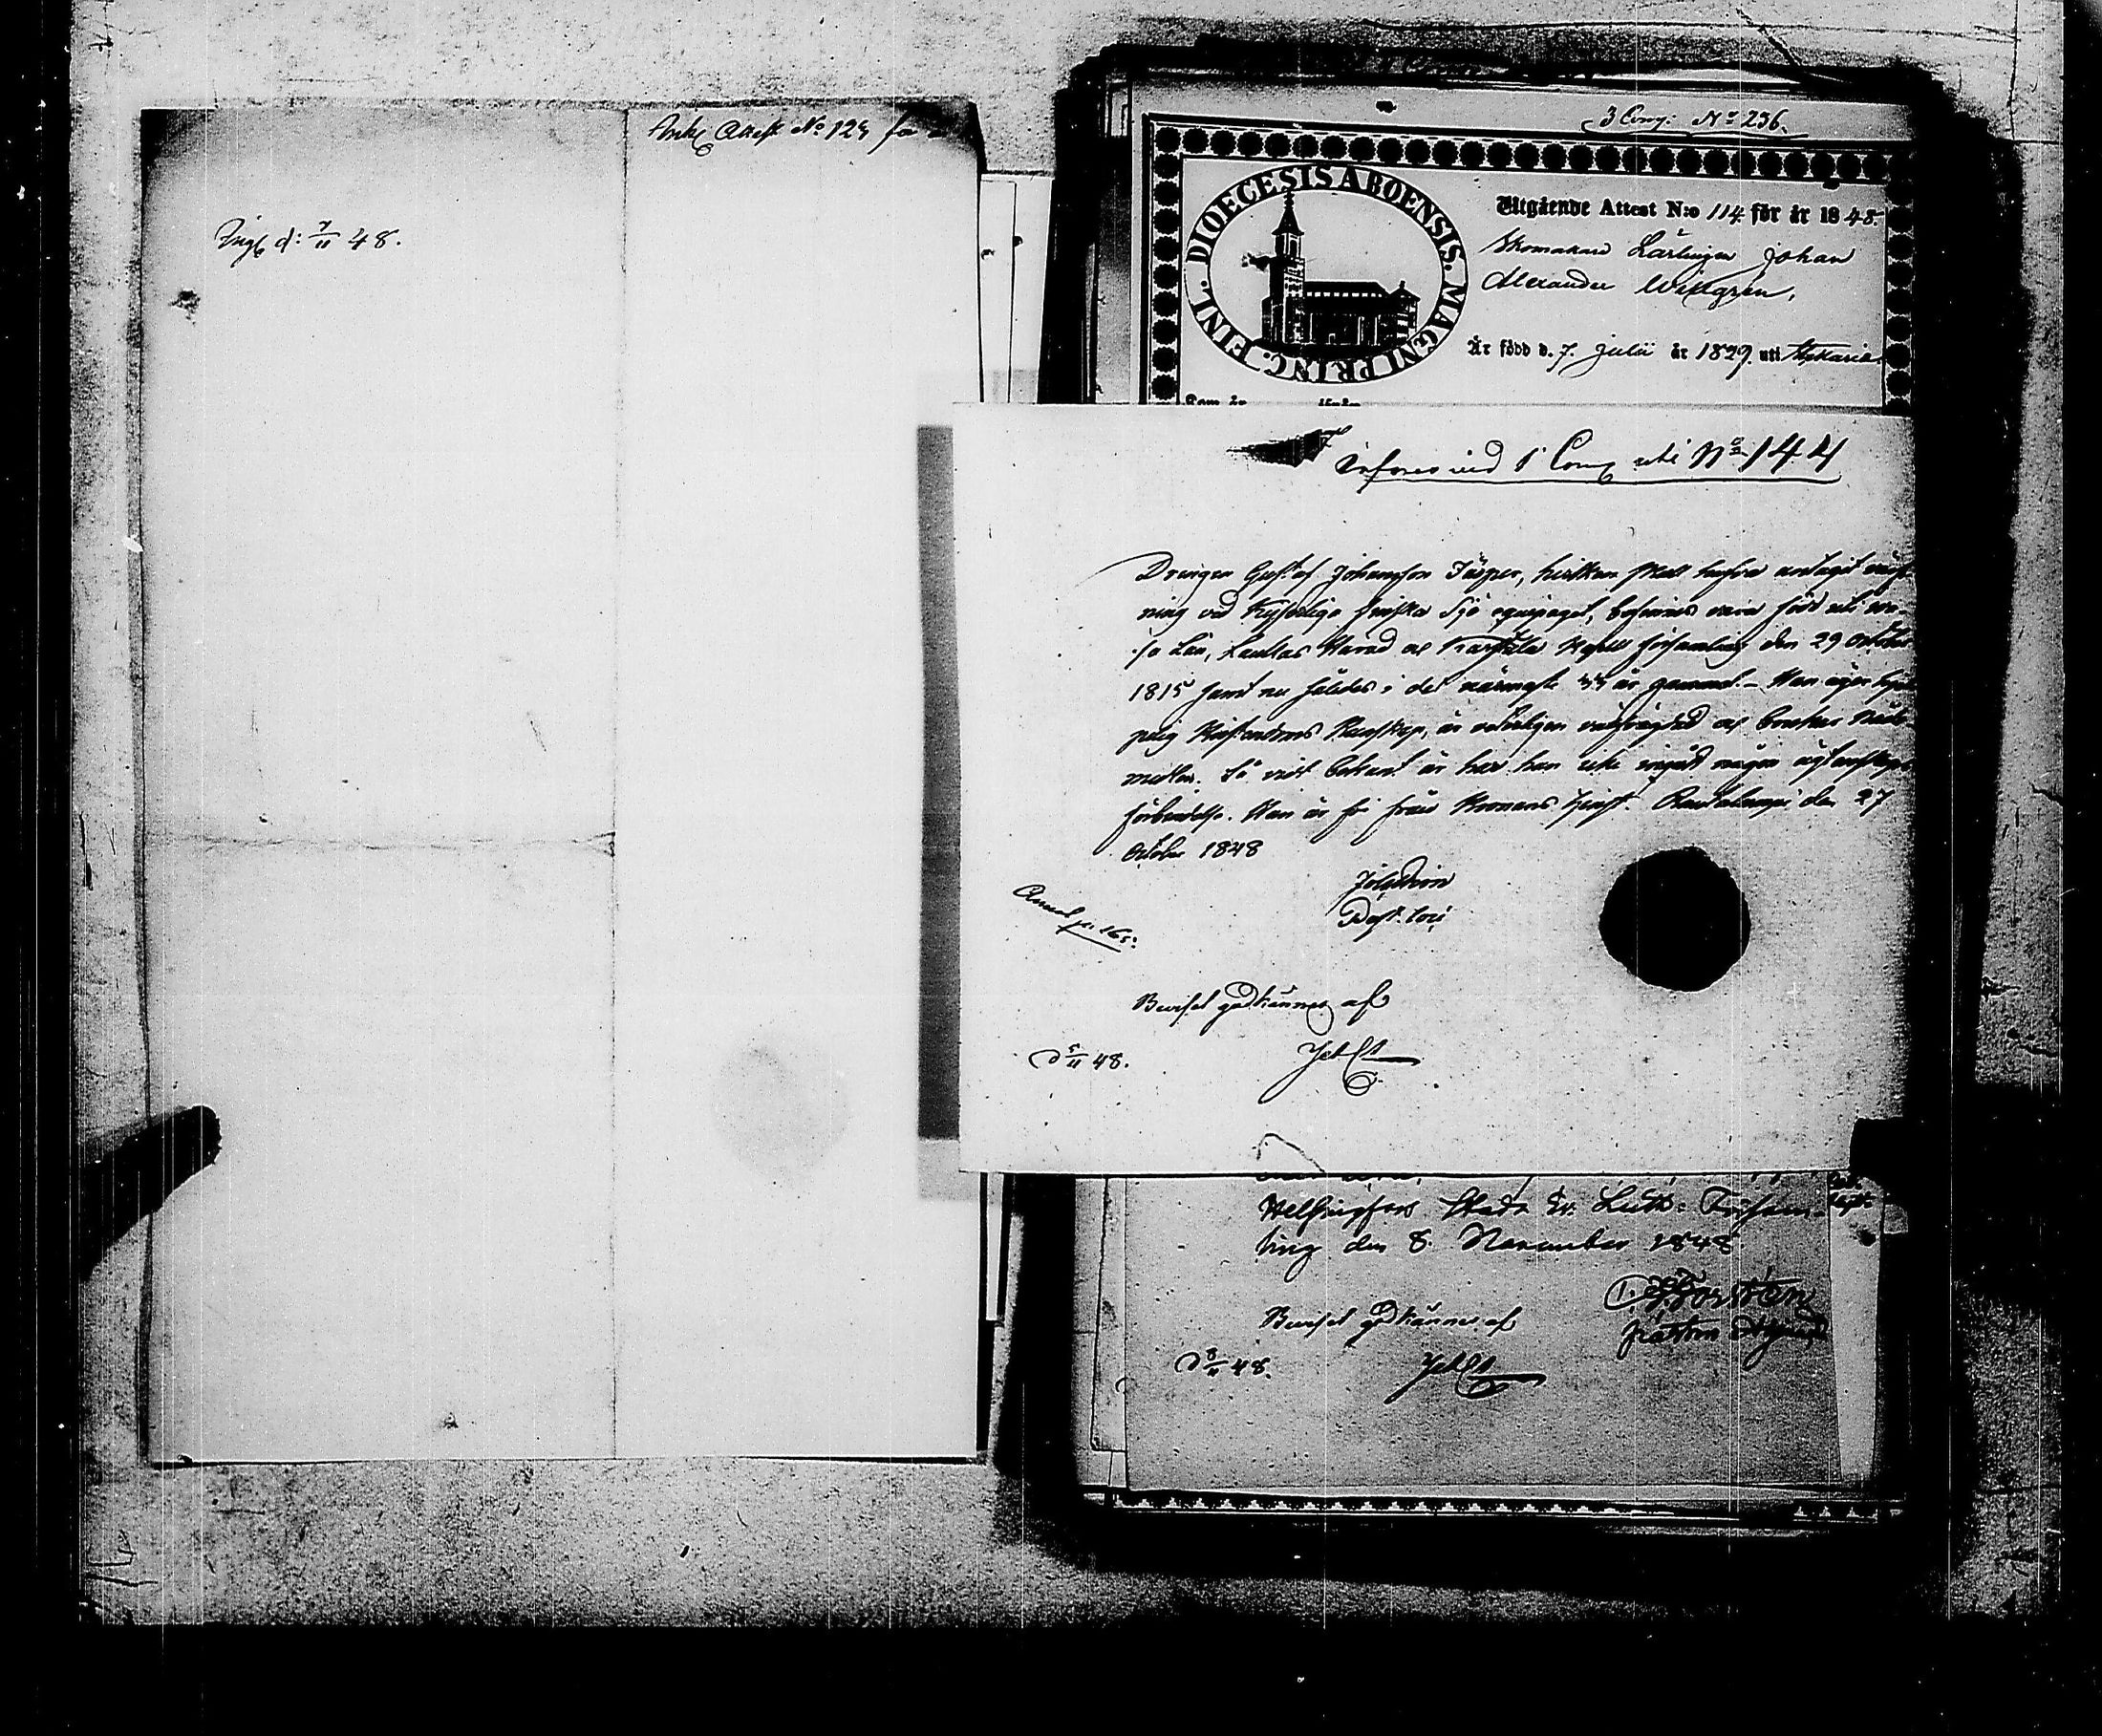 Ank Attest No 124 för
Ingk d: 7/11 48.
3 Comp: No 236.
DIOECESIS ABOENSIS. MAGNI PRINC. FINL.
Utgående Attest N:o 114 för år 1848.
Skomakare Lärlingen Johan
Alexander Willgren,
Är född d. 7. Julii år 1829. uti Nykaria
Införes vid 1 Comp uti No 144
Drengen Gustaf Johansson Jäsper, hvilken skall hafva antagit värf-
ning vid Kejserliga finska Sjö equipaget, befinnes vara född uti Wa-
sa Län, Laukas Härad och Karstula Kapell församling den 29 October
1815 samt nu således i det närmaste 33 år gammal. - Han äger
Christendoms Kunskap, är välfräjdad och brukar Nådi
medlen. Så vidt bekant är har han icke ingått någon ägtenskaps
förbindelse. Han är fri från Kronans tjenst. Rautalampi den 27
October 1848
Past. loci
Beviset godkännes af
d 5/11 48.
Helsingfors Stads Ev. Luth: Försam-
ling den 8. November 1848.
Forstén
Beviset godkännes af
d 8/11 48.